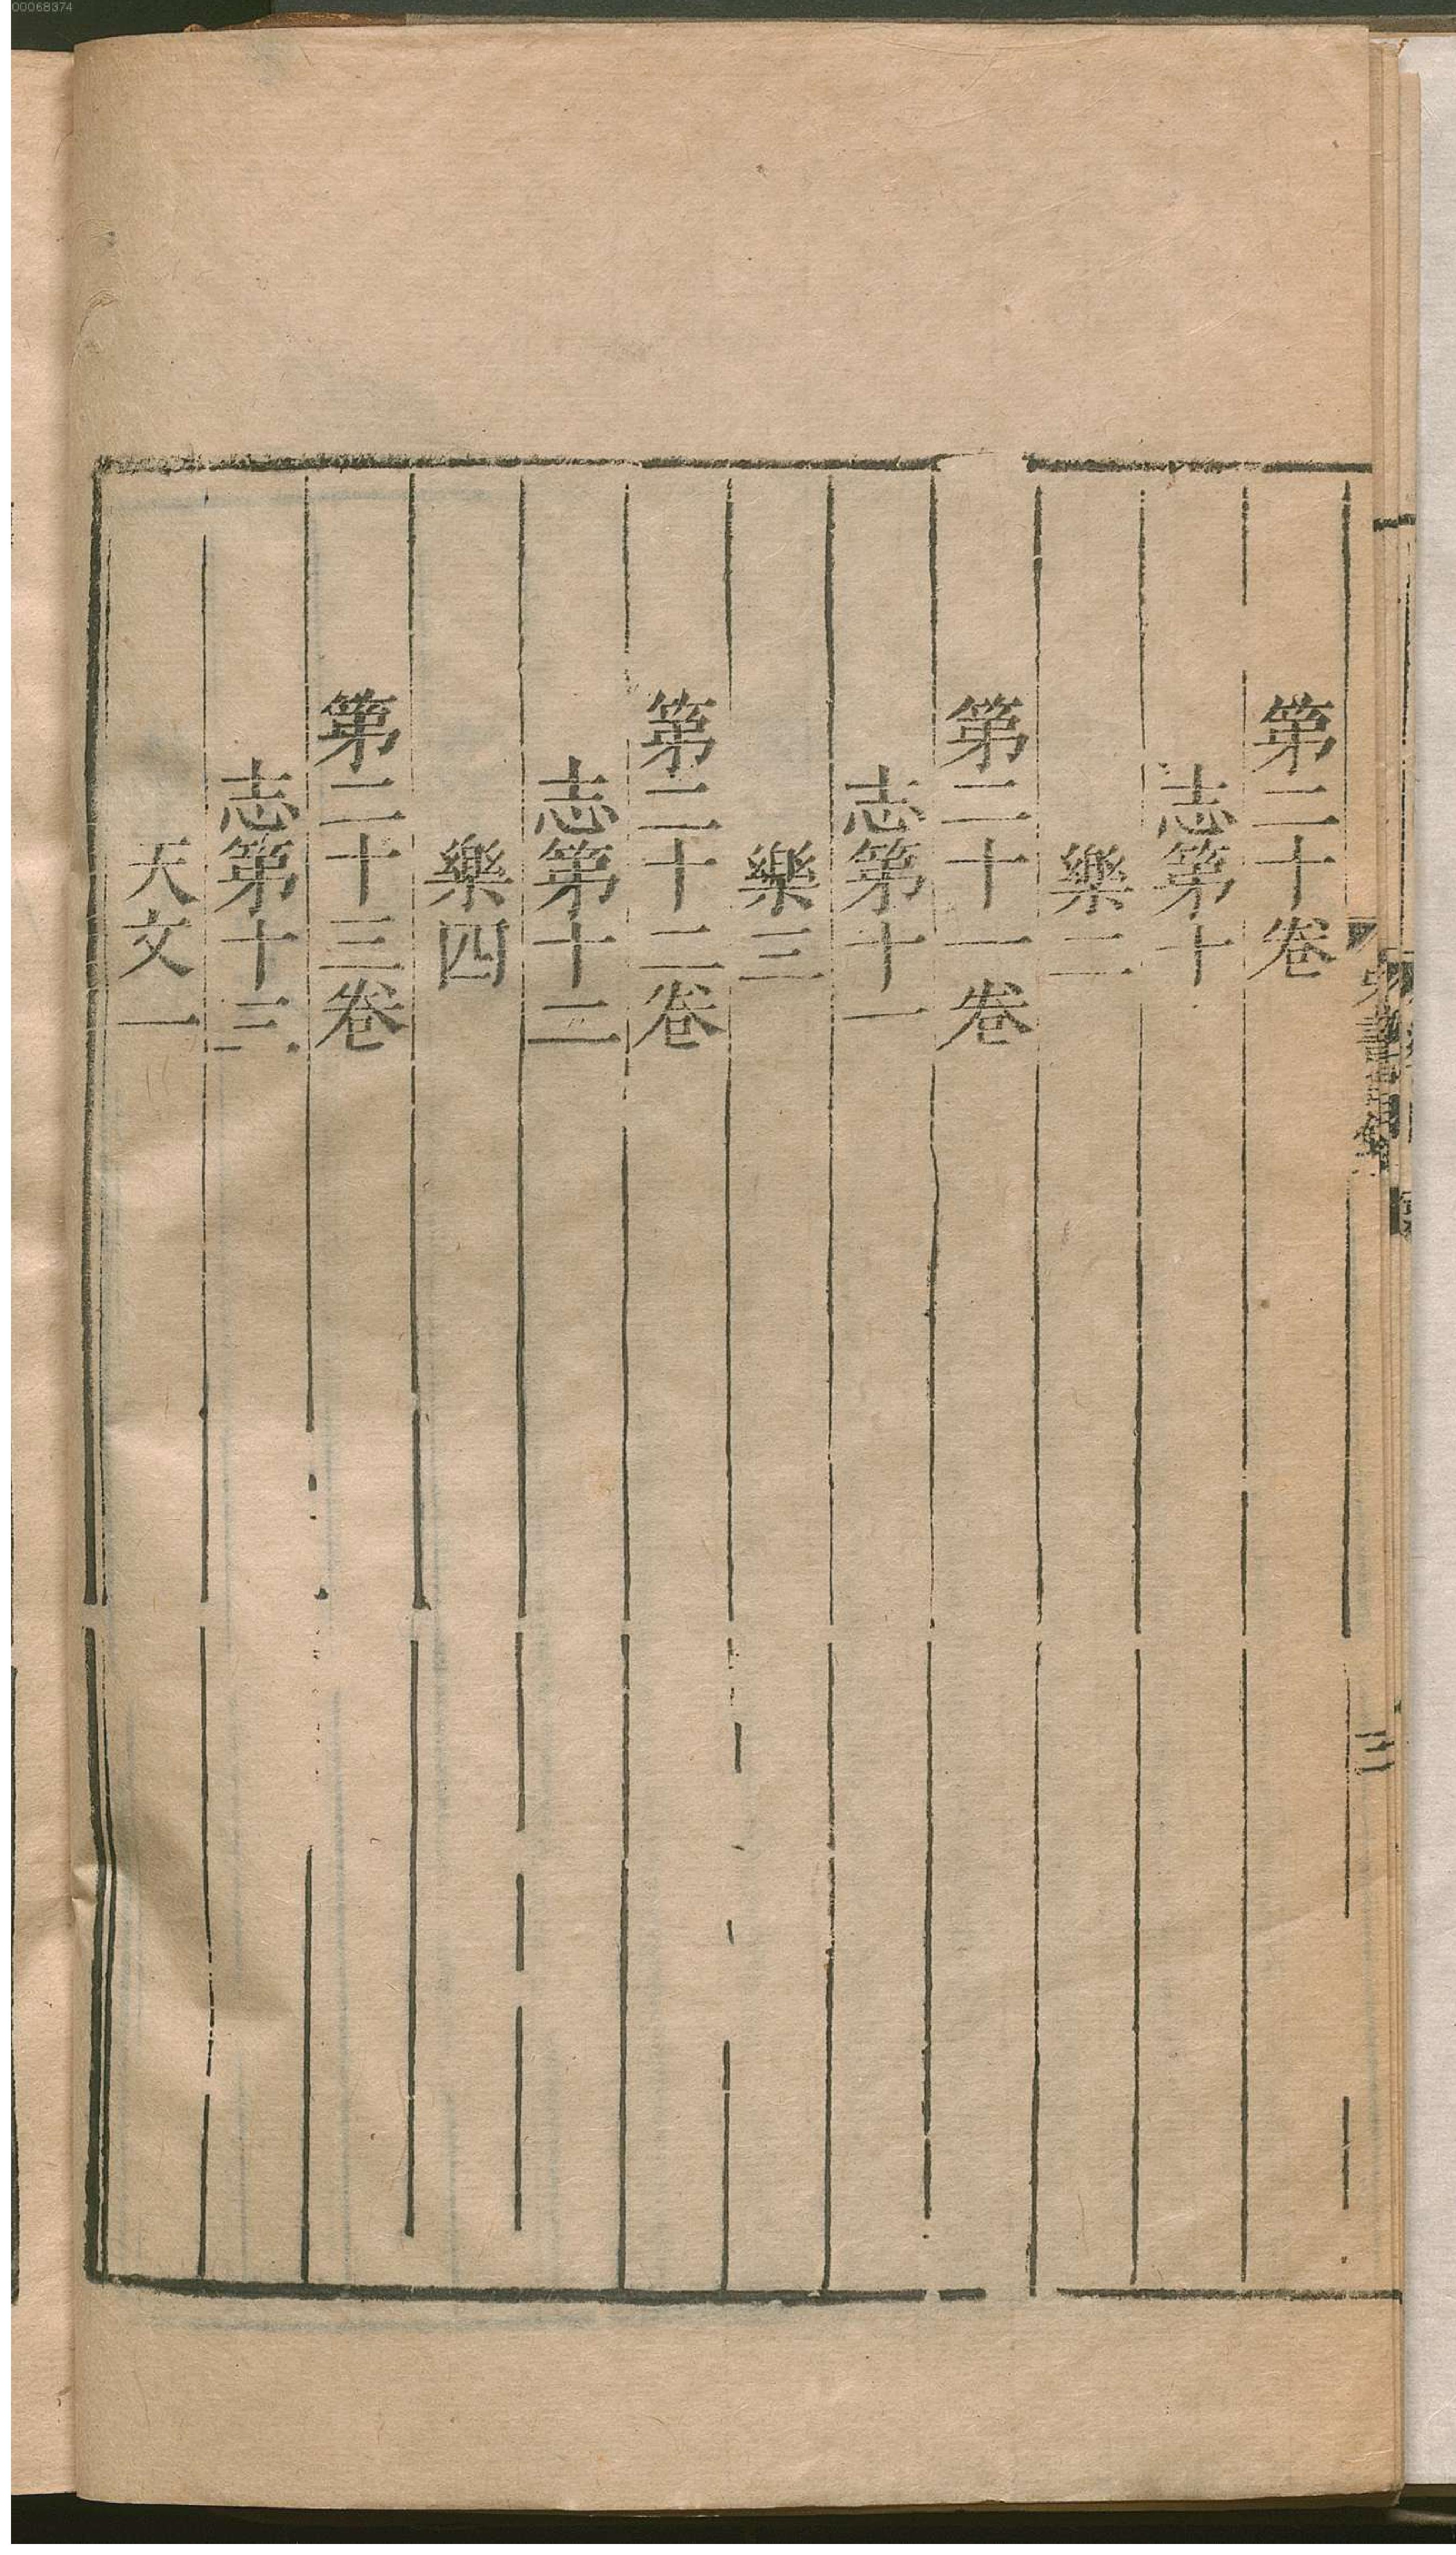 00068374
第二十卷
志第十
樂二
第二十一卷
志第十一
樂三
第二十二卷
志第十二
樂四
第二十三卷
志第十三
天文一
三